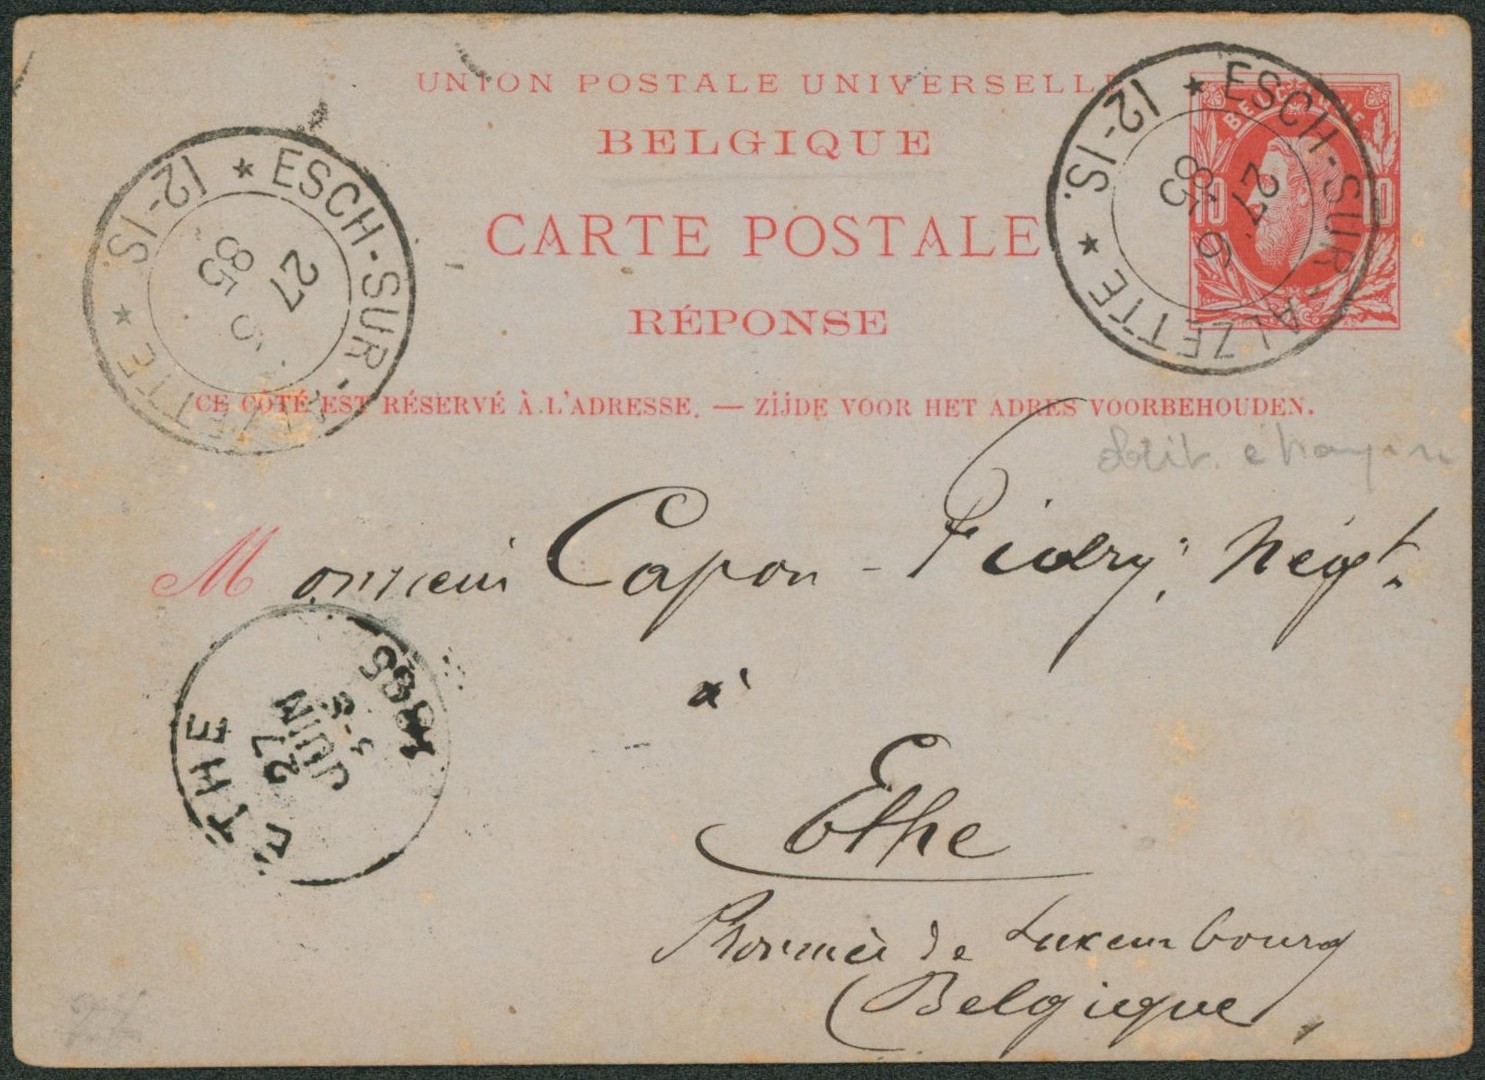 UNION POSTALE UNIVERSELL
BELGIQUE
CARTE POSTALE
RÉPONSE
CE CÔTÉ EST RÉSERVÉ À L'ADRESSE. — ZIJDE VOOR HET ADRES VOORBEHOUDEN.
ESCH-SUR-ALZETTE ★ 12-1S ★
27
6
85
BELGIQUE
10 10
ESCH-SUR-ALZETTE ★ 12-1S. ★
27
6
85
Monsieur Capon - Fidry, Négt.
à
Ethe
Province de Luxembourg
(Belgique)
ETHE
27
JUIN
3-S
1885